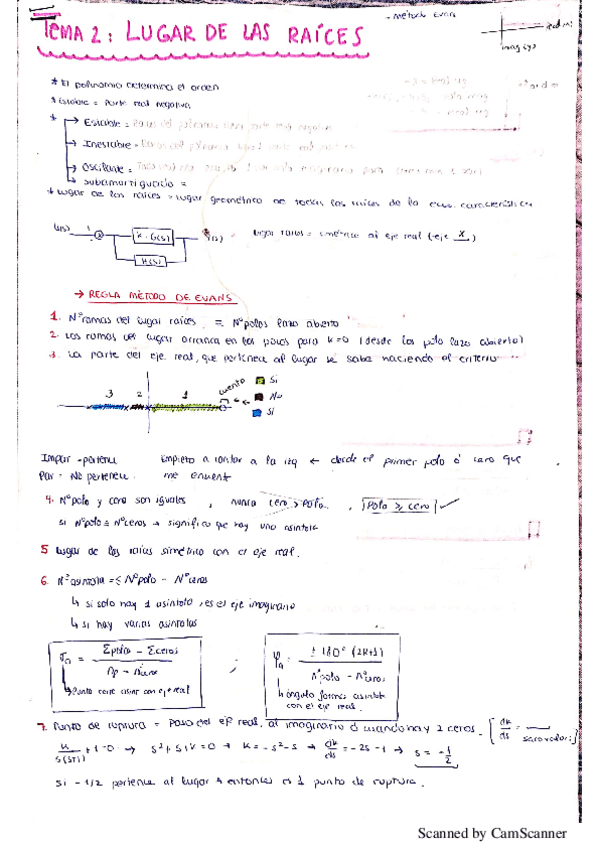 - método Evans
TEMA 2: LUGAR DE LAS RAÍCES
* El polinomio determina el orden
* Estable = Parte real negativa
* → Estable =
→ Inestable =
→ Oscilante =
→ subamortiguado =
* Lugar de las raíces = lugar geométrico de todas las raíces de la ecua. característica
K·G(s)
H(s)
Lugar raíces = simétrico al eje real (eje x)
→ REGLA MÉTODO DE EVANS
1. Nº ramas del lugar raíces = Nº polos lazo abierto
2. Las ramas del lugar arrancan en los polos para k=0 (desde los polo lazo abierto)
3. La parte del eje real, que pertenece al lugar se sabe haciendo el criterio
3 2 1 cuento
Si
No
Si
Impar - pertene Empiezo a contar a la izq ← desde el primer polo ó cero que
Par - No pertenece. me encuent
4. Nº polo y cero son iguales, nunca cero > Polo, Polo ≥ cero
si Nº polo ≠ Nº ceros → significa que hay una asintota
5 Lugar de las raíces simétrico con el eje real.
6. Nº asintota = Nº Polo - Nº ceros
↳ si solo hay 1 asintota, es el eje imaginario
↳ si hay varias asintotas
σa = Σpolo - Σceros / Np - Nceros
↳ Punto corte asin con eje real
;
φa = ± 180° (2K+1) / Nº polo - Nº ceros
↳ ángulo forman asintota con el eje real
7. Punto de ruptura = Paso del eje real, al imaginario ó cuando hay 2 ceros. [dk/ds =
k/s(s+1) + 1=0 → s²+s+k=0 → k=-s²-s → dk/ds = -2s-1 → s = -1/2
Si -1/2 pertenece al lugar → entonces es 1 punto de ruptura.
Scanned by CamScanner